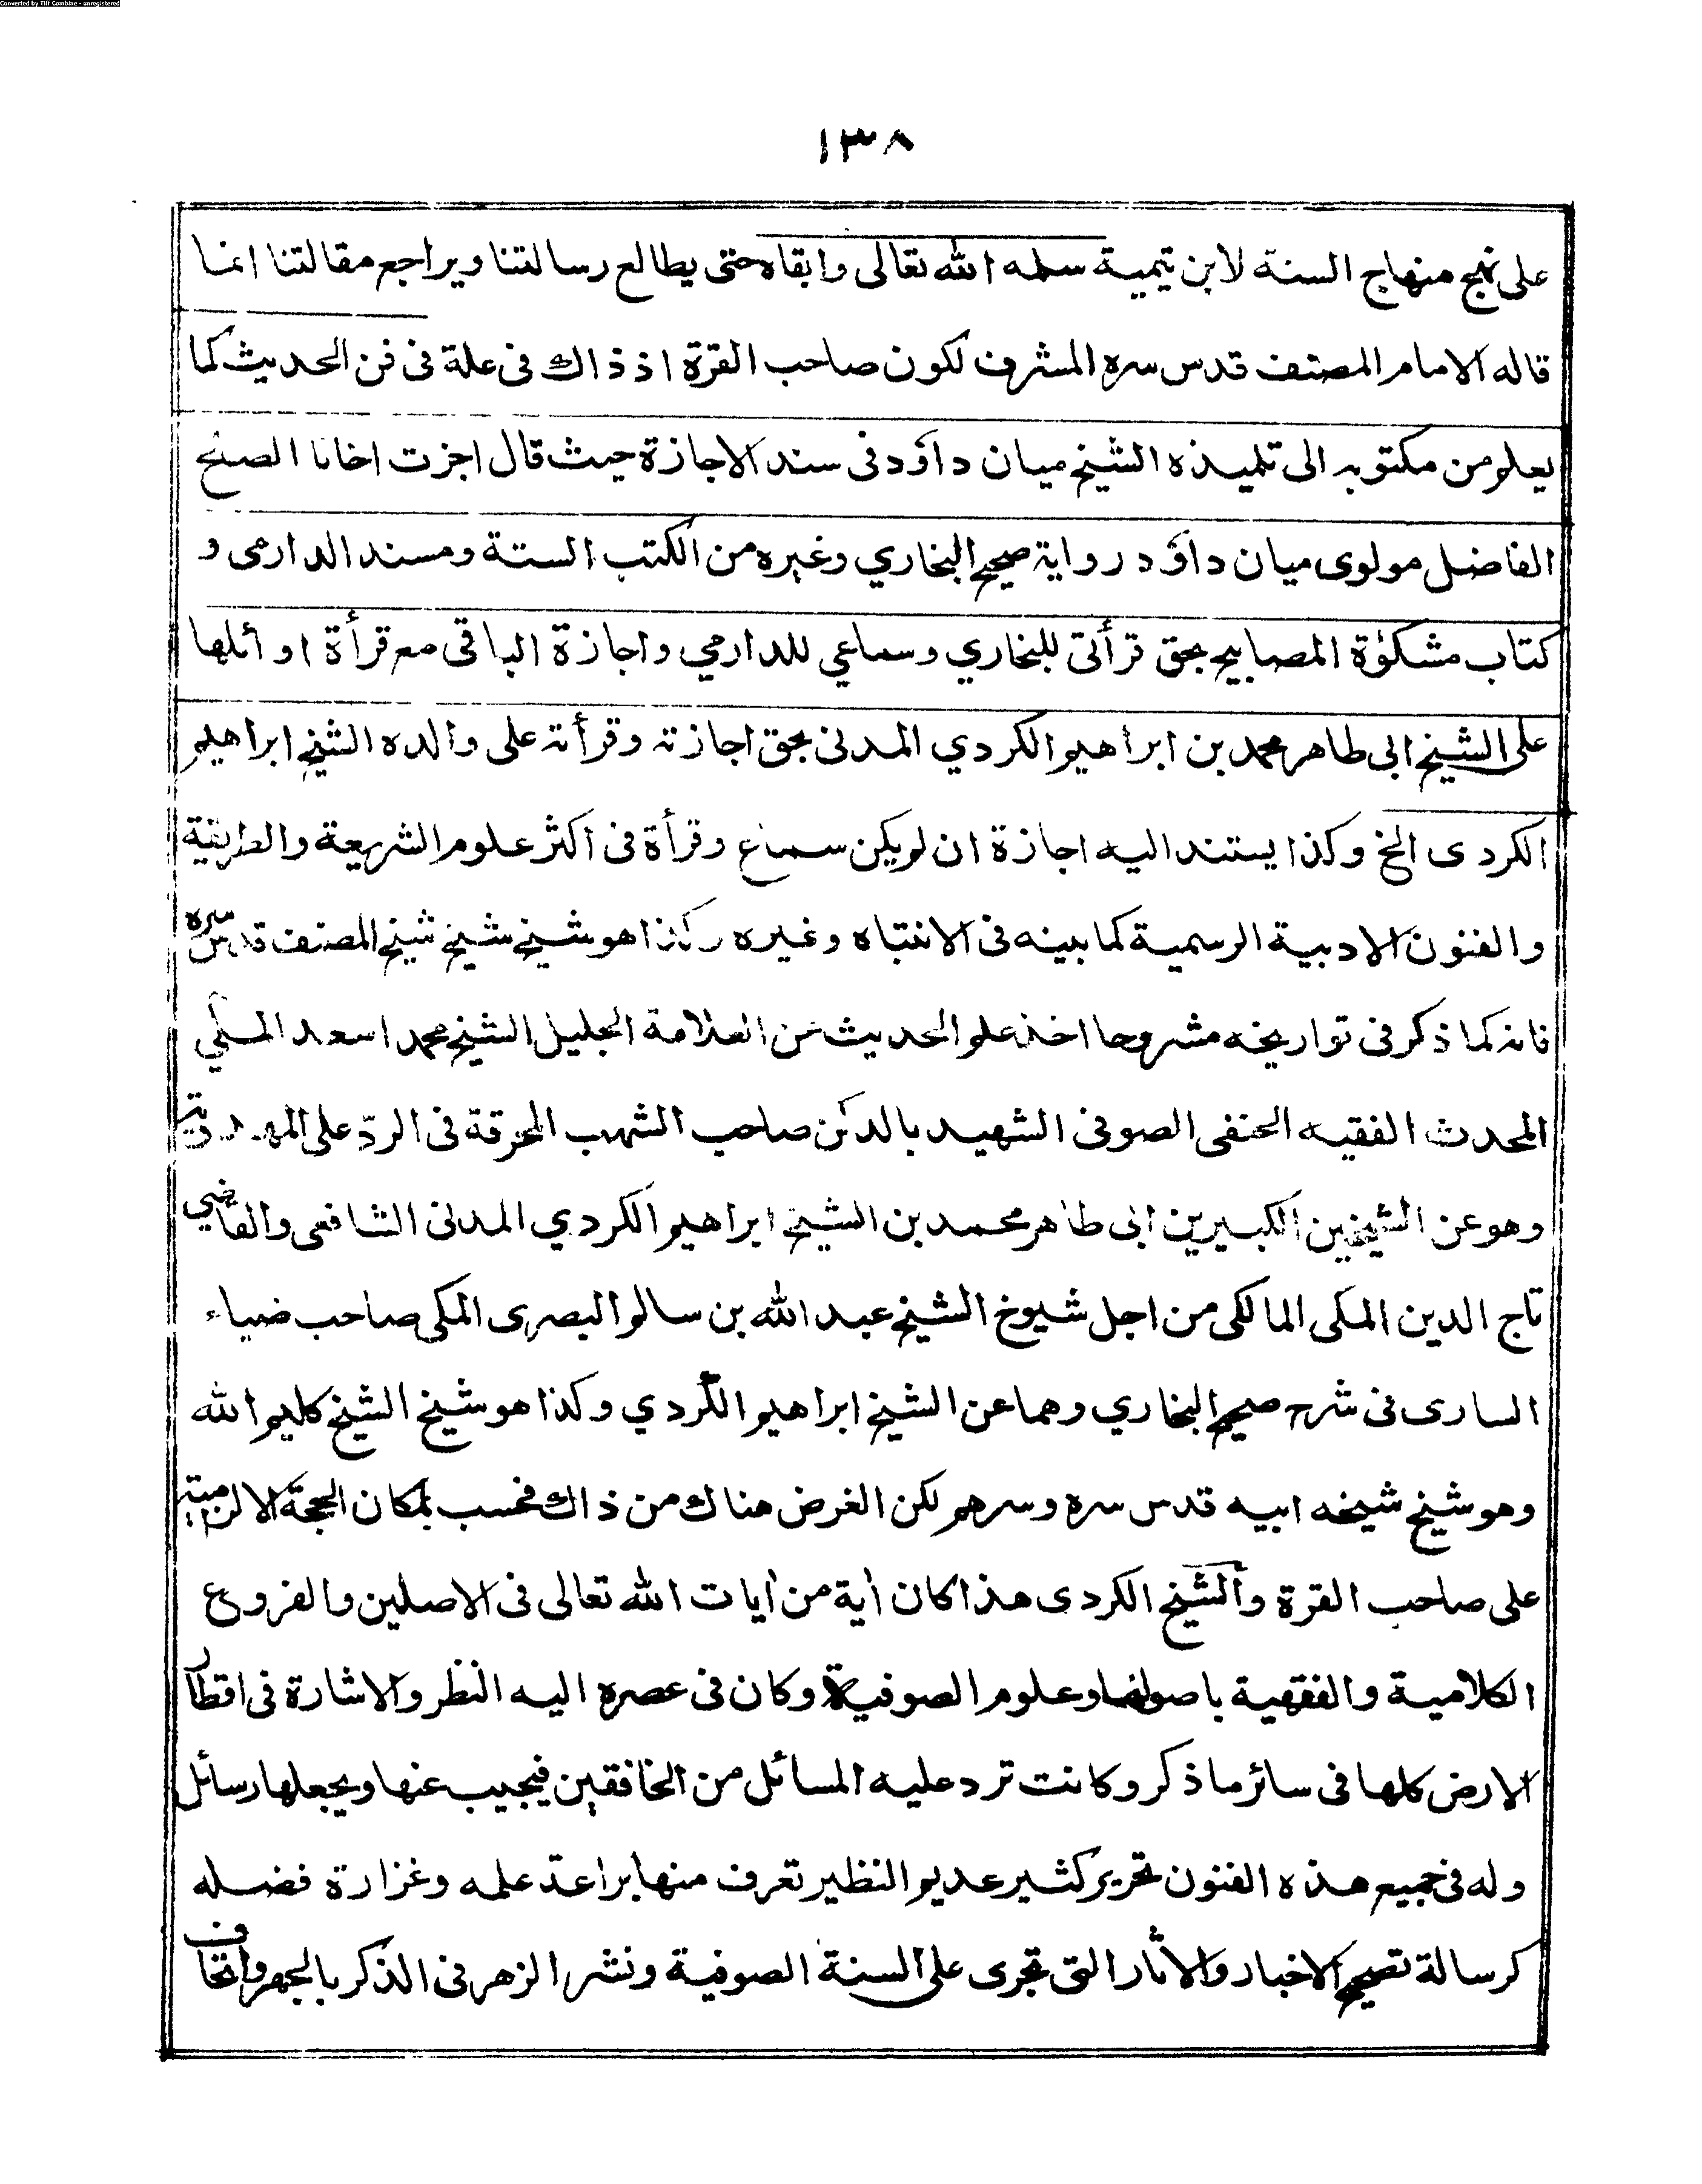 Converted by Tiff Combine - unregistered
١٣٨
على نهج منهاج السنة لابن تيمية سلمه الله تعالى وابقاه حتى يطالع رسالتنا ويراجع مقالتنا انما
قاله الامام المصنف قدس سره المشرف لكون صاحب القرة اذ ذاك فى علة فى فن الحديث كما
يعلم من مكتوبه الى تلميذه الشيخ ميان داؤد فى سند الاجازة حيث قال اجزت اخانا الصالح
الفاضل مولوى ميان داؤد رواية صحيح البخاري وغيره من الكتب الستة ومسند الدارمى و
كتاب مشكوٰة المصابيح بحق قرأتى للبخاري وسماعي للدارمي واجازة الباقى مع قرأة اوائلها
على الشيخ ابى طاهر محمد بن ابراهيم الكردي المدنى بحق اجازته وقرأته على والده الشيخ ابراهيم
الكردى الخ وكذا يستند اليه اجازة ان لم يكن سماع وقرأة فى اكثر علوم الشريعة والطريقة
والفنون الادبية الرسمية كما بينه فى الانتباه وغيره وكذا هو شيخ شيخ شيخ المصنف قدس سره
فانه كما ذكر فى تواريخه مشروحا اخذ علم الحديث عن العلامة الجليل الشيخ محمد اسعد المكي
المحدث الفقيه الحنفى الصوفى الشهيد بالدكن صاحب الشهب المحرقة فى الردّ على المهدوية
وهو عن الشيخين الكبيرين ابى طاهر محمد بن الشيخ ابراهيم الكردي المدنى الشافعى والقاضي
تاج الدين المكى المالكى من اجل شيوخ الشيخ عبد الله بن سالم البصرى المكى صاحب ضياء
السارى فى شرح صحيح البخاري وهما عن الشيخ ابراهيم الكردي وكذا هو شيخ الشيخ كليم الله
وهو شيخ شيخه ابيه قدس سره وسرهم لكن الغرض هناك من ذاك فحسب لمكان الحجة الالزامية
على صاحب القرة والشيخ الكردى هذا كان أية من أيات الله تعالى فى الاصلين والفروع
الكلامية والفقهية باصولها وعلوم الصوفية وكان فى عصره اليه النظر والاشارة فى اقطار
الارض كلها فى سائر ما ذكر وكانت ترد عليه المسائل من الخافقين فيجيب عنها ويجعلها رسائل
وله فى جميع هذه الفنون تحرير كثير عديم النظير تعرف منها براعة علمه وغزارة فضله
كرسالة تصحيح الاخبار والأثار التى تجرى على السنة الصوفية ونشر الزهر فى الذكر بالجهر واتحاف